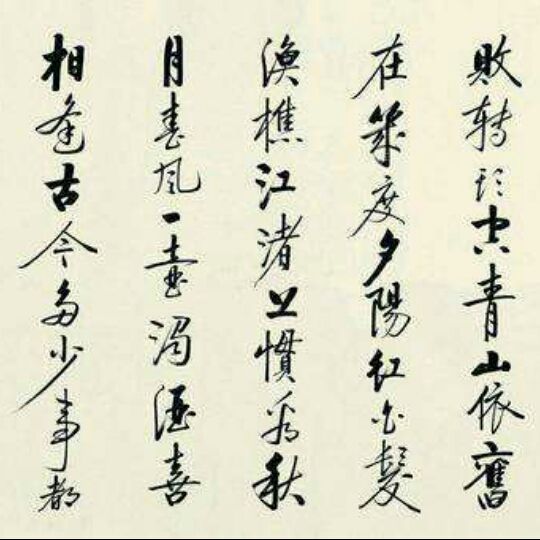 敗轉頭空青山依舊
在幾度夕陽紅白髮
漁樵江渚上慣看秋
月春風一壺濁酒喜
相逢古今多少事都